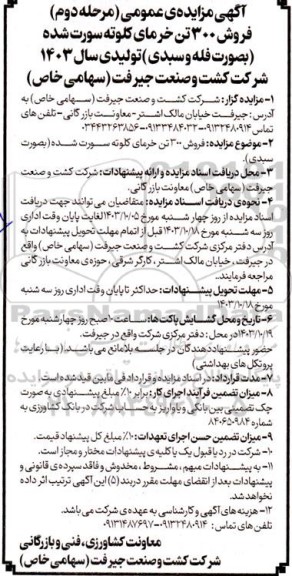 آگهی مزایده‌ی عمومی (مرحله دوم)
فروش ۳۰۰ تن خرمای کلوته سورت شده
(بصورت فله و سبدی) تولیدی سال ۱۴۰۳
شرکت کشت و صنعت جیرفت (سهامی خاص)
۱- مزایده گزار : شرکت کشت و صنعت جیرفت (سهامی خاص) به
آدرس : جیرفت خیابان مالک اشتر - معاونت بازرگانی - تلفن های
تماس ۰۹۱۳۲۴۸۰۹۱۴-۰۹۱۳۳۴۸۴۰۳۳-۰۳۴۴۳۲۶۳۸۵۶
۲- موضوع مزایده : فروش ۳۰۰ تن خرمای کلوته سورت شده (بصورت
سبدی).
۳- محل دریافت اسناد مزایده و ارائه پیشنهادات : شرکت کشت و صنعت
جیرفت (سهامی خاص) معاونت بازرگانی.
۴- نحوه‌ی دریافت اسناد مزایده : متقاضیان می توانند جهت دریافت
اسناد مزایده از روز چهار شنبه مورخ ۱۴۰۳/۱۰/۰۵ لغایت پایان وقت اداری
روز سه شنبه مورخ ۱۴۰۳/۱۰/۱۸ قبل از اتمام مهلت تحویل پیشنهادات به
آدرس دفتر مرکزی شرکت کشت و صنعت جیرفت (سهامی خاص) واقع
در جیرفت ، خیابان مالک اشتر ، کارگر شرقی ، حوزه‌ی معاونت بازرگانی
مراجعه فرمایند..
۵- مهلت تحویل پیشنهادات : حداکثر تا پایان وقت اداری روز سه شنبه
مورخ ۱۴۰۳/۱۰/۱۸
۶- تاریخ و محل گشایش پاکت ها: صبح روز چهارشنبه مورخ
۱۴۰۳/۱۰/۱۹ در محل : دفتر مرکزی شرکت واقع در جیرفت.
حضور پیشنهاد دهندگان در جلسه بلامانع می باشد. (با رعایت
پروتکل های بهداشتی)
۷- مدت قرارداد : در اسناد مزایده و قرارداد فی مابین قید شده است
۸- میزان تضمین فرآیند اجرای کار : برابر ۱۰٪ مبلغ پیشنهادی به صورت
چک تضمینی بین بانکی و یا واریز به حساب شرکت در بانک کشاورزی به
شماره ۸۴۰۶۵۰۹۸۴
۹- میزان تضمین حسن اجرای تعهدات : ۱۰٪ مبلغ کل پیشنهاد قیمت.
۱۰- شرکت در رد یا قبول یک یا کلیه ی پیشنهادات مختار و مجاز است.
۱۱- به پیشنهادات مبهم ، مشروط ، مخدوش و فاقد سپرده ی قانونی و
پیشنهادات بعد از انقضای مهلت مقرر در بند (۵) این آگهی ترتیب اثر داده
نخواهد شد.
۱۲- هزینه های آگهی و کارشناسی به عهده ی شرکت می باشد.
تلفن های تماس : ۰۹۱۳۲۴۸۰۹۱۴-۰۹۱۳۱۴۸۷۶۹۷
معاونت کشاورزی، فنی و بازرگانی
شرکت کشت و صنعت جیرفت (سهامی خاص)